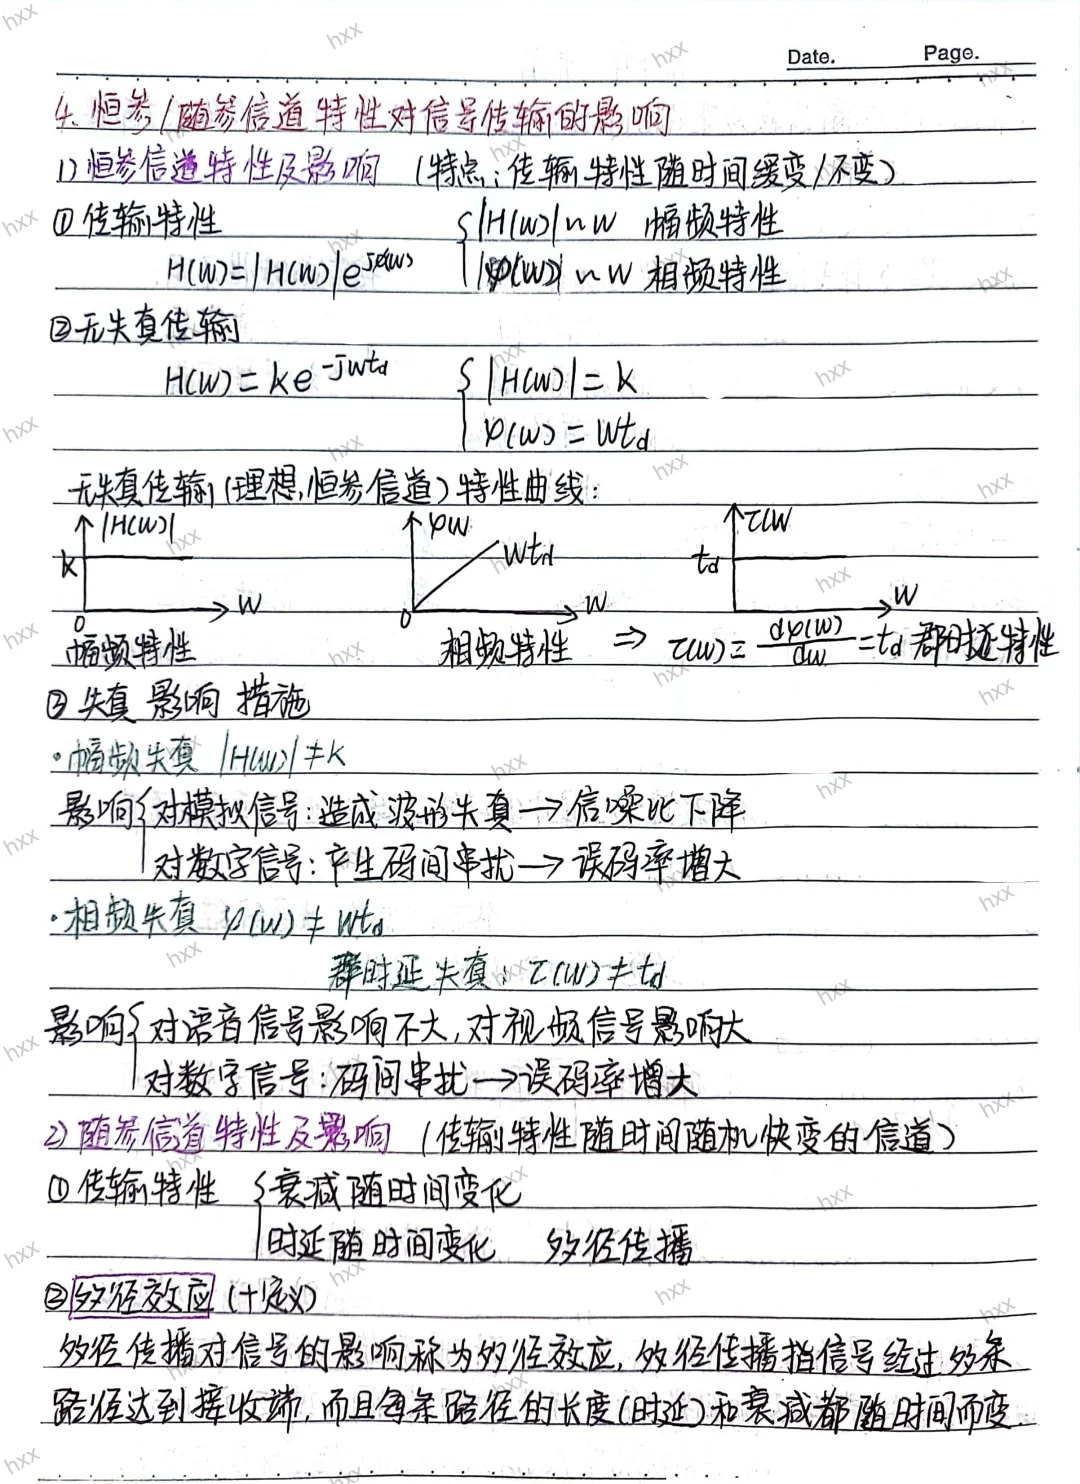 Date. Page.
4. 恒参/随参信道特性对信号传输的影响
1) 恒参信道特性及影响 (特点:传输特性随时间缓变/不变)
① 传输特性 { |H(w)|~w 幅频特性
H(w)=|H(w)|e^{jφ(w)} |φ(w)|~w 相频特性
② 无失真传输
H(w)=ke^{-jwtd} { |H(w)|=k
φ(w)=wtd
无失真传输(理想,恒参信道)特性曲线:
|H(w)| φw τ(w
k wtd td
w w w
0 0
幅频特性 相频特性 ⇒ τ(w)=dφ(w)/dw=td 群时延特性
③ 失真 影响 措施
·幅频失真 |H(w)|≠k
影响{对模拟信号:造成波形失真→信噪比下降
对数字信号:产生码间串扰→误码率增大
·相频失真 φ(w)≠wtd
群时延失真:τ(w)≠td
影响{对语音信号影响不大,对视频信号影响大
对数字信号:码间串扰→误码率增大
2) 随参信道特性及影响 (传输特性随时间随机快变的信道)
① 传输特性 {衰减随时间变化
时延随时间变化 多径传播
② 多径效应 (+定义)
多径传播对信号的影响称为多径效应,多径传播指信号经过多条
路径达到接收端,而且每条路径的长度(时延)和衰减都随时间而变.
hxx